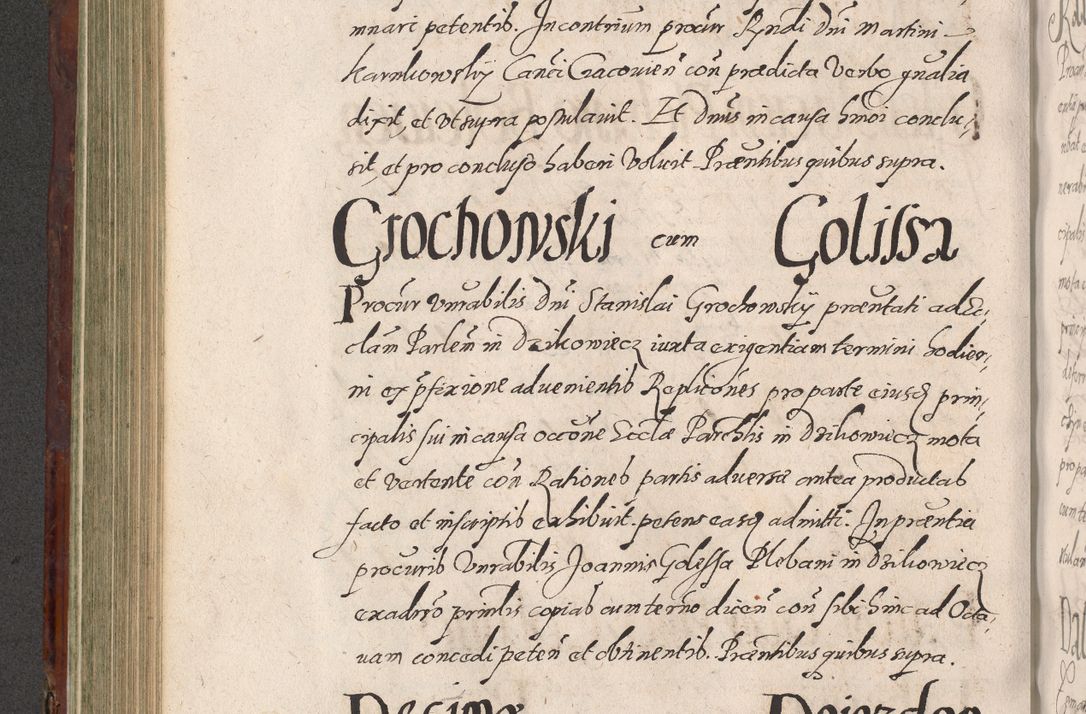 mnari petentib. In contrium procur Rndi Dni Martini
Karnkowskÿ Canci Cracovien̄ con̄ prædicta verbo gnalia
dixit, et vt supra postulavit. Et Dnus in causa hmoi conclu-
sit, et pro concluso haberi voluit. Præntibus quibus supra.
Grochowski cum Golissa
Procur Vnrabilis Dni Stanislai Grochowskÿ præntati ad Ec-
clam Parlem̄ in Dzikowiecz iuxta exigentiam termini hodier-
ni ex pfixione advenientib Replicōnes pro parte eiusq prin-
cipalis sui in causa occōne Ecclæ Parchlis in Dzikowiecz mota
et vertente con̄ Rationes partis adversæ antea productas
facto et inscriptis exhibuit petens easq admitti. In præntia
procuris Vnrabilis Joannis Golessa Plebani in Dzikowiecz
ex adrro prinlis copias cum termo dicen̄ con̄ sibi hinc ad Octa-
vam concedi peten̄ et obtinentib. Præntibus quibus supra.